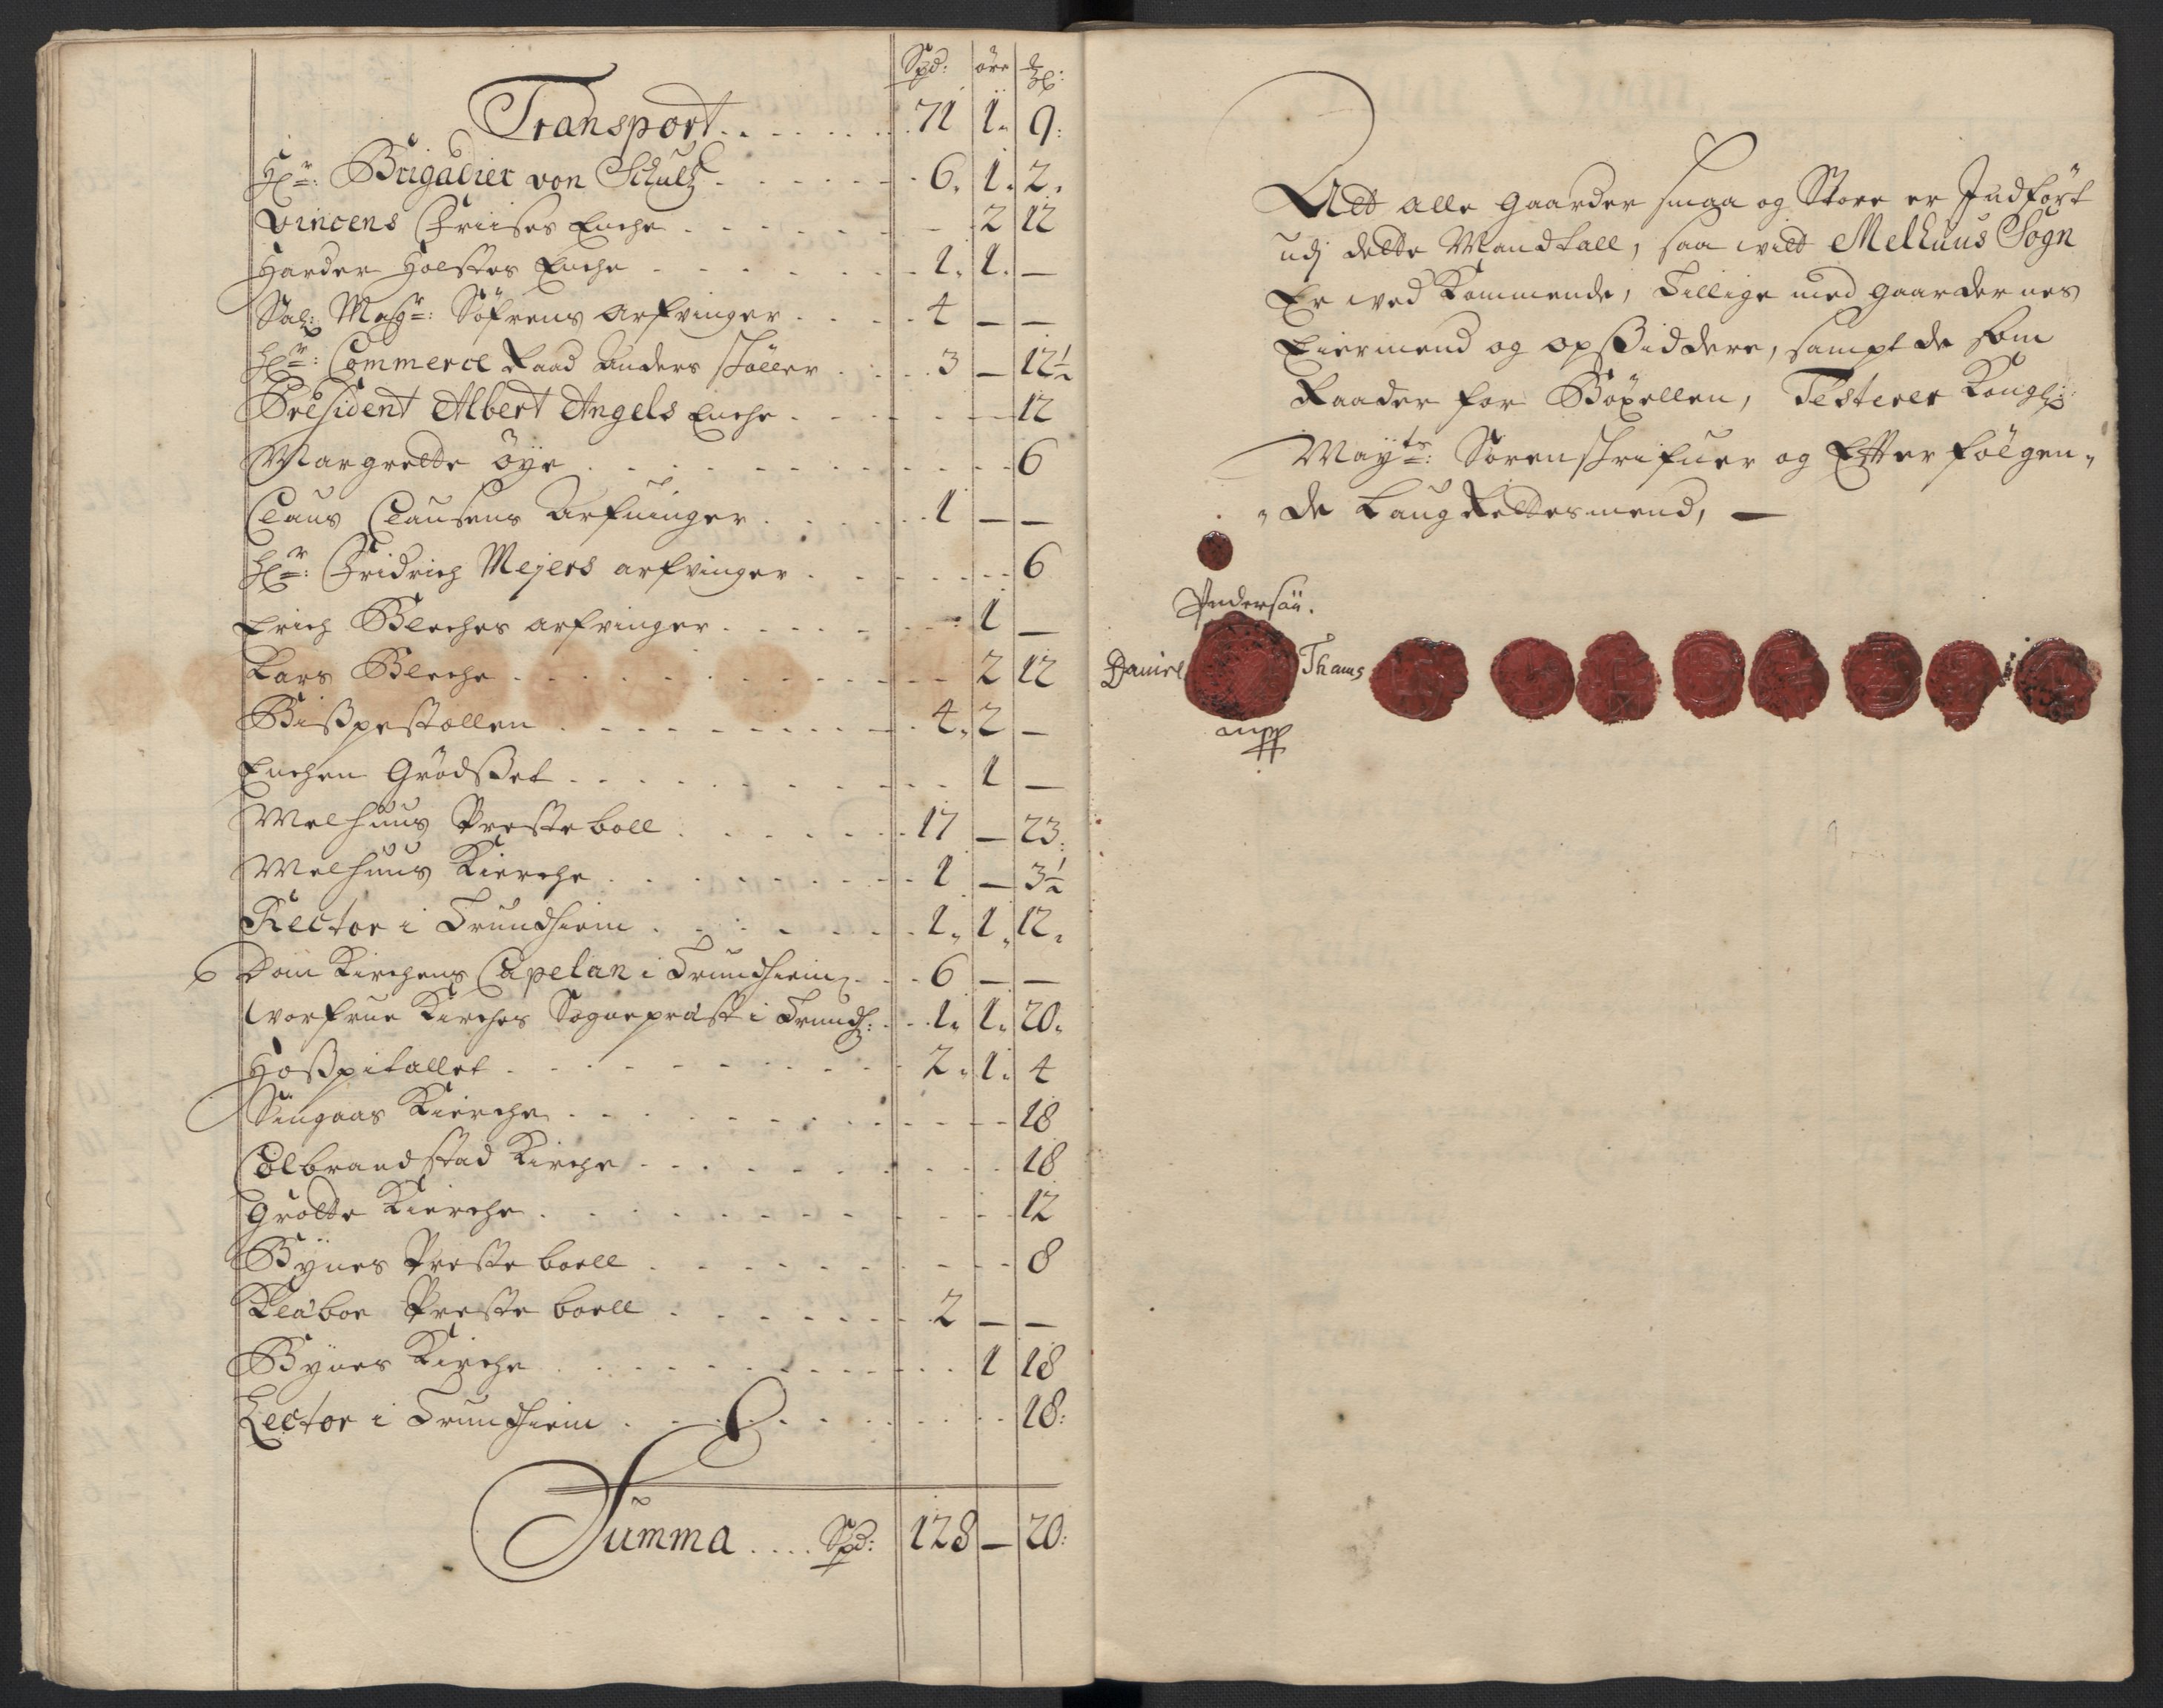 Spd: öre
Transport . . . . . . . 71 1. 9:
Hr: Brigadier von Schultz . . . . . . 6. 1. 2.
Vincens Friises Enche . . . . . . – 2 12
Harder Holstes Enche . . . . . . 1. 1. –
Sal: Magr: Söfrens arfvinger . . . . 4 – –
Hr: Commerce Raad Anders Schöller . . . 3 – 12½
Præsident Albert Angels Enche . . . . – 12
Margrette öye . . . . . . . . 6
Claus Clausens Arfuinger . . . . . 1 – –
Hr: Fridrich Mejers arfvinger . . . . . . 6
Erich Bleches arfvinger . . . . . . 1 –
Lars Bleche . . . . . . . . 2 12
Bispestollen . . . . . . . . 4. 2 –
Enchen Grödset . . . . . . . . 1 –
Melhuus Presteboll . . . . . . 17 – 23:
Melhuus Kierche . . . . . . . 1 – 3½
Rector i Trundhiem . . . . . . 1. 1. 12.
6 Dom Kirchens Capelan i Trundhiem . . 6 – –
Worfrue Kirches Sognepræst i Trundh: . . 1. 1. 20.
Hospitallet . . . . . . . . 2. 1. 4
Singaas Kierche . . . . . . . . 18
Colbrandstad Kirche . . . . . . . . 18
Grötte Kierche . . . . . . . . 12
Bynes Preste boell . . . . . . . . 8
Klæboe Preste boell . . . . . . 2 – –
Bynes Kirche . . . . . . . . 1 18
Lector i Trundhiem . . . . . . . . 18:
Summa . . . . Spd: 128 – 20:
Att alle gaarder smaa og Store er Indfört
udj dette Mandtall, saa vitt Melhuus Sogn
Er ved Kommende, Tillige med gaardernes
Eiermend og opsiddere, sampt de som
Raader for Böxellen, Testerer Kongl:
Mayts: Sorenskrifuer og Efterfölgen„
„de Laug Rettesmend, –
Andersön.
Daniel Thams
mpp